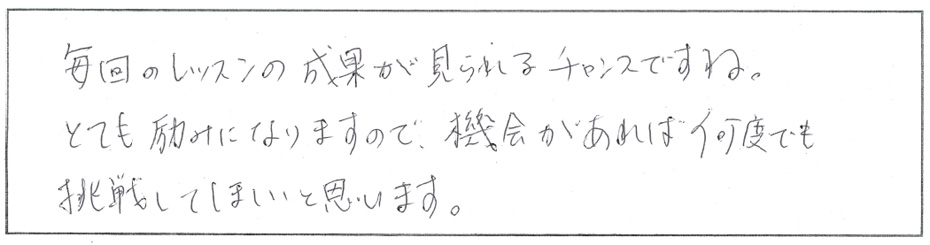 毎回のレッスンの成果が見られるチャンスですね。
とても励みになりますので、機会があれば何度でも
挑戦してほしいと思います。